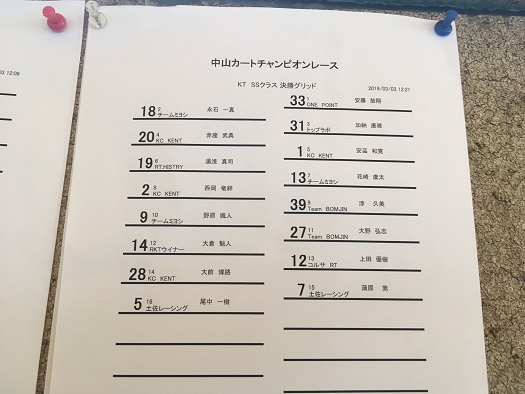 中山カートチャンピオンレース
KT SSクラス 決勝グリッド
2019/03/03 13:21
33 1 ONE POINT 安藤
18 2 チームミヨシ 永石 一真
31 3 トップラボ 加納 康雅
20 4 KC KENT 赤座 武典
1 5 KC KENT 安芸 和寛
19 6 RT.HISTRY 湯浅 真司
13 7 チームミヨシ 花崎 康太
2 8 KC KENT 西岡 竜絆
39 9 Team BOMJIN 淳 久美
9 10 チームミヨシ 野原 颯人
27 11 Team BOMJIN 大野 弘志
14 12 RKTウイナー 大倉 魁人
12 13 コルサ RT 上田 優樹
28 14 KC KENT 大前 博路
7 15 土佐レーシング 蒲原 篤
5 16 土佐レーシング 尾中 一樹